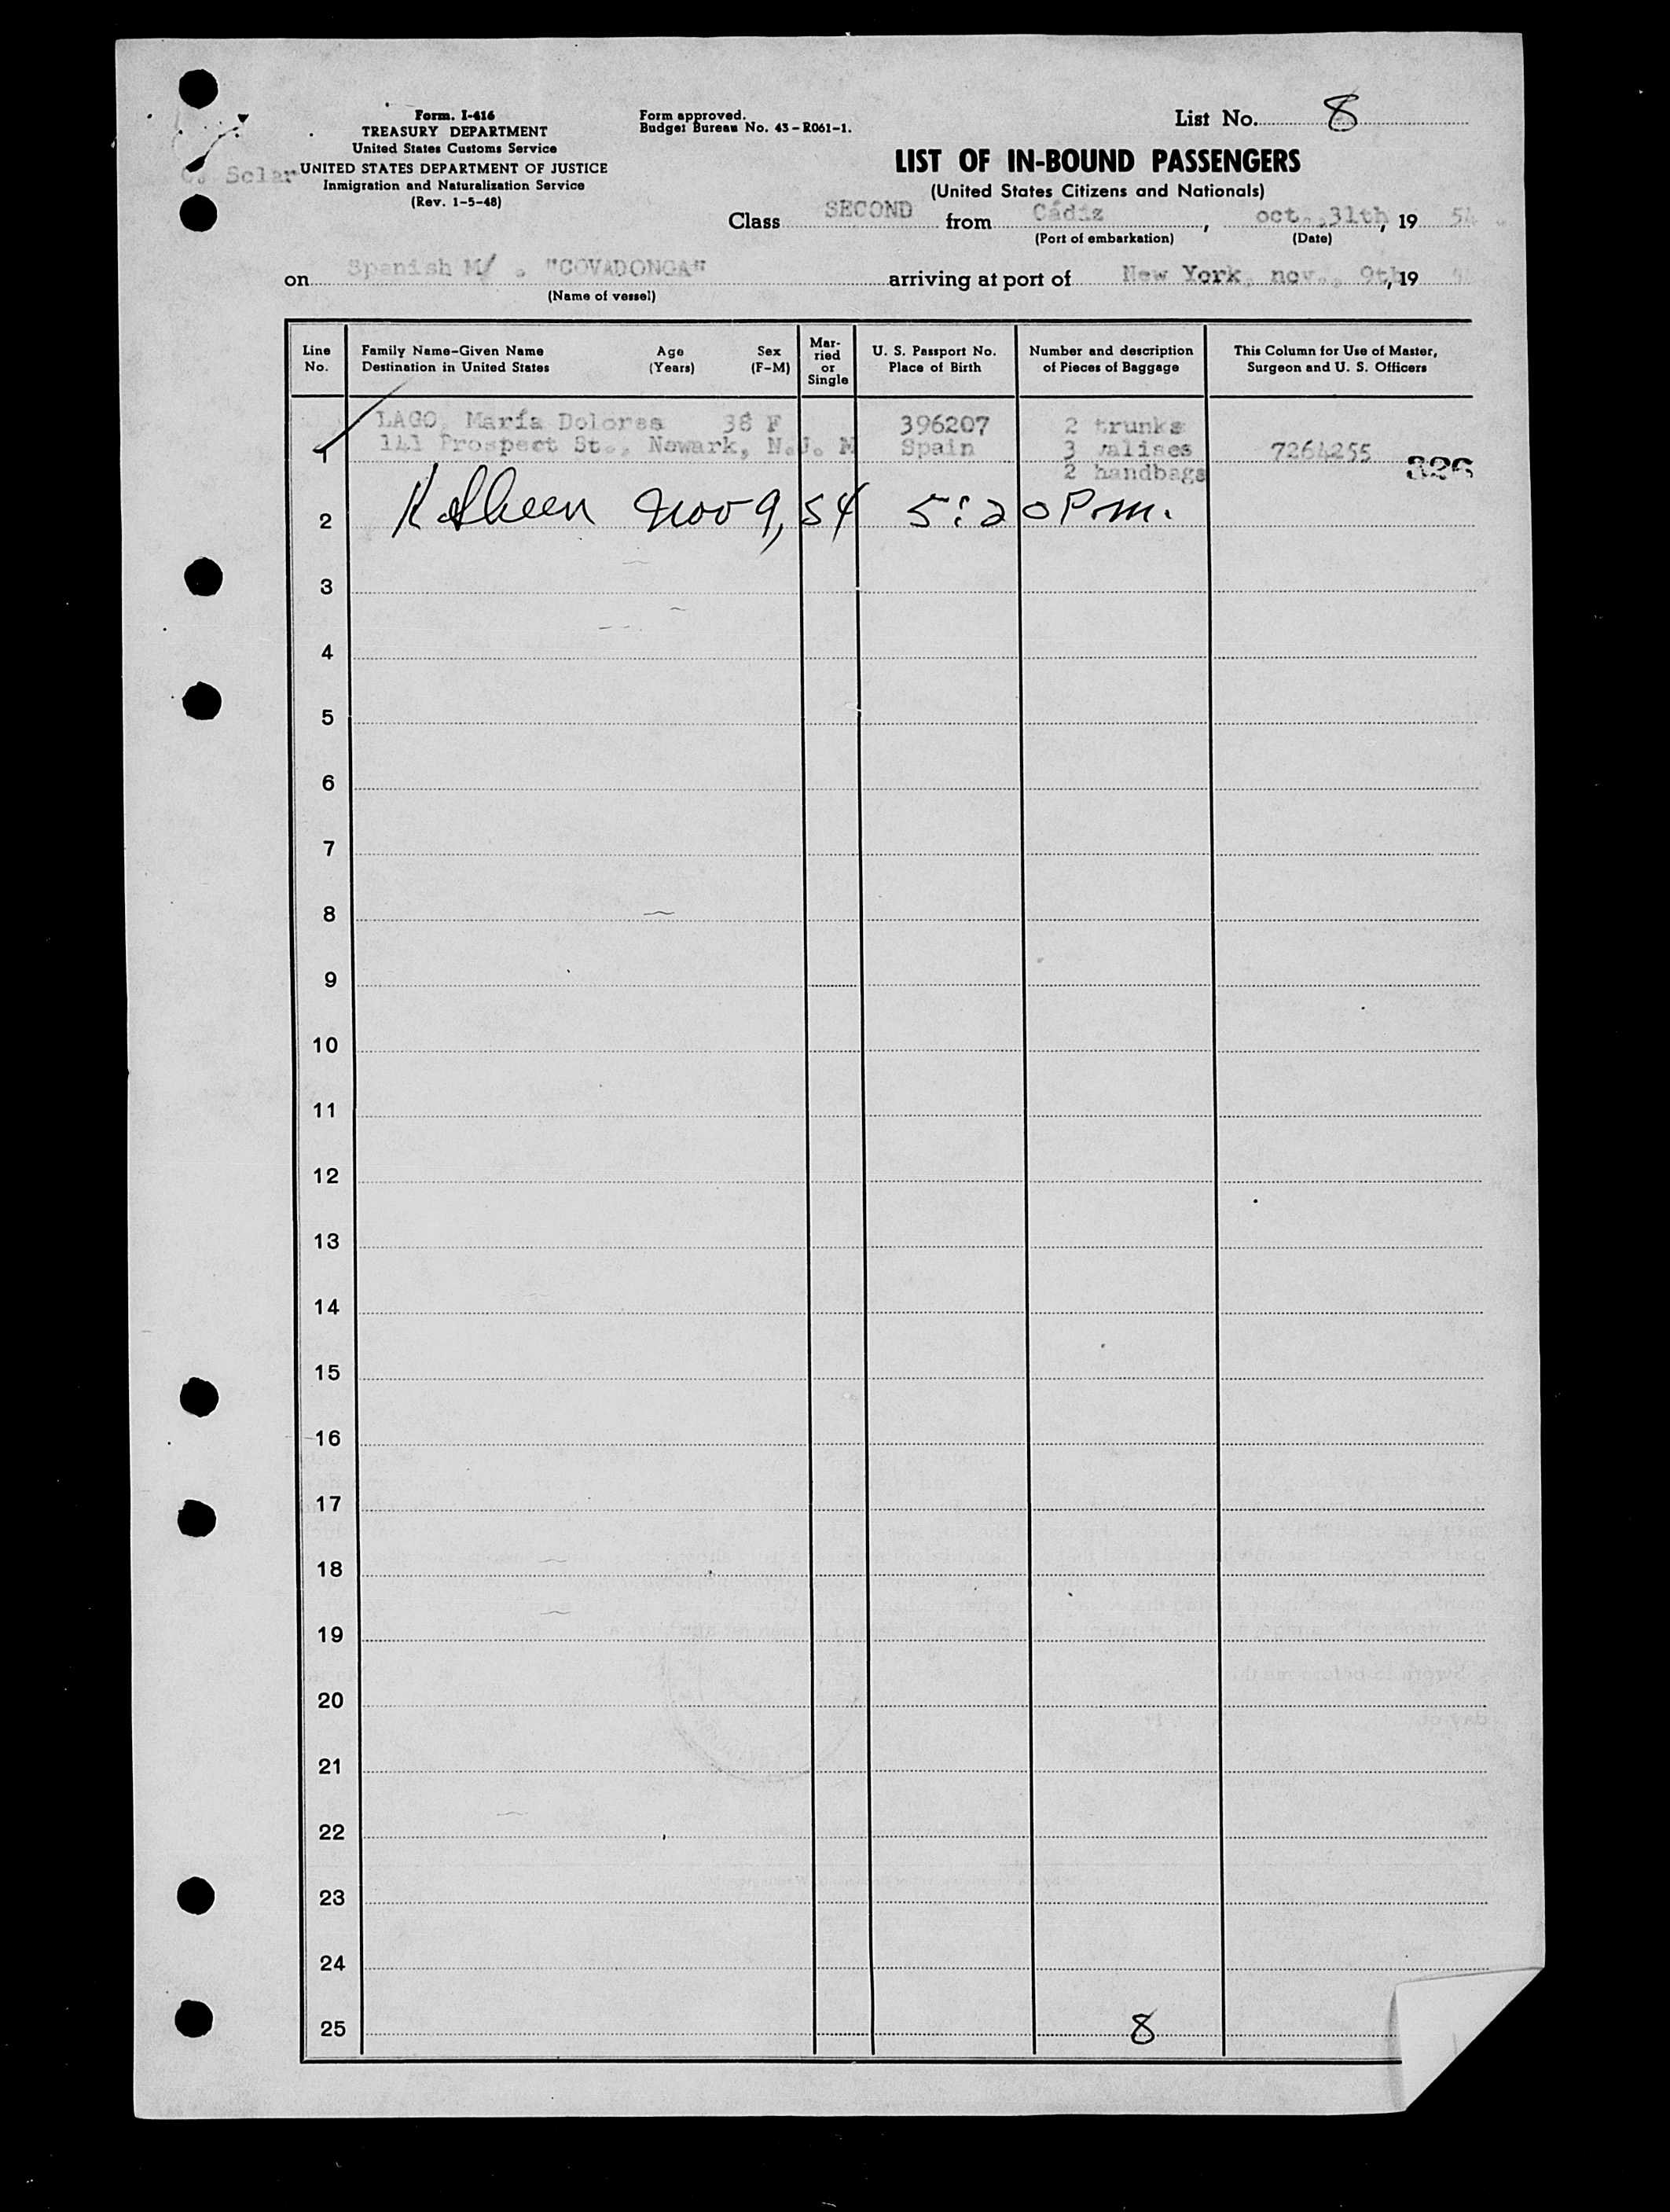 Form. I-416
TREASURY DEPARTMENT
United States Customs Service
UNITED STATES DEPARTMENT OF JUSTICE
Inmigration and Naturalization Service
(Rev. 1-5-48)
Form approved.
Budget Bureau No. 43-R061-1.
List No. 8
LIST OF IN-BOUND PASSENGERS
(United States Citizens and Nationals)
Class SECOND from Cádiz, oct., 31th, 19 54
(Port of embarkation) (Date)
on Spanish M/ . "COVADONGA" arriving at port of New York, nov., 9th, 19
(Name of vessel)
Line No.
Family Name-Given Name Age Sex
Destination in United States (Years) (F-M)
Married or Single
U. S. Passport No.
Place of Birth
Number and description
of Pieces of Baggage
This Column for Use of Master,
Surgeon and U. S. Officers
LAGO, María Dolores 38 F 396207 2 trunks
1 141 Prospect St., Newark, N.J. M Spain 3 valises 7264255 326
2 handbags
2 Nov 9, 54 5:20 P.m.
3
4
5
6
7
8
9
10
11
12
13
14
15
16
17
18
19
20
21
22
23
24
25 8